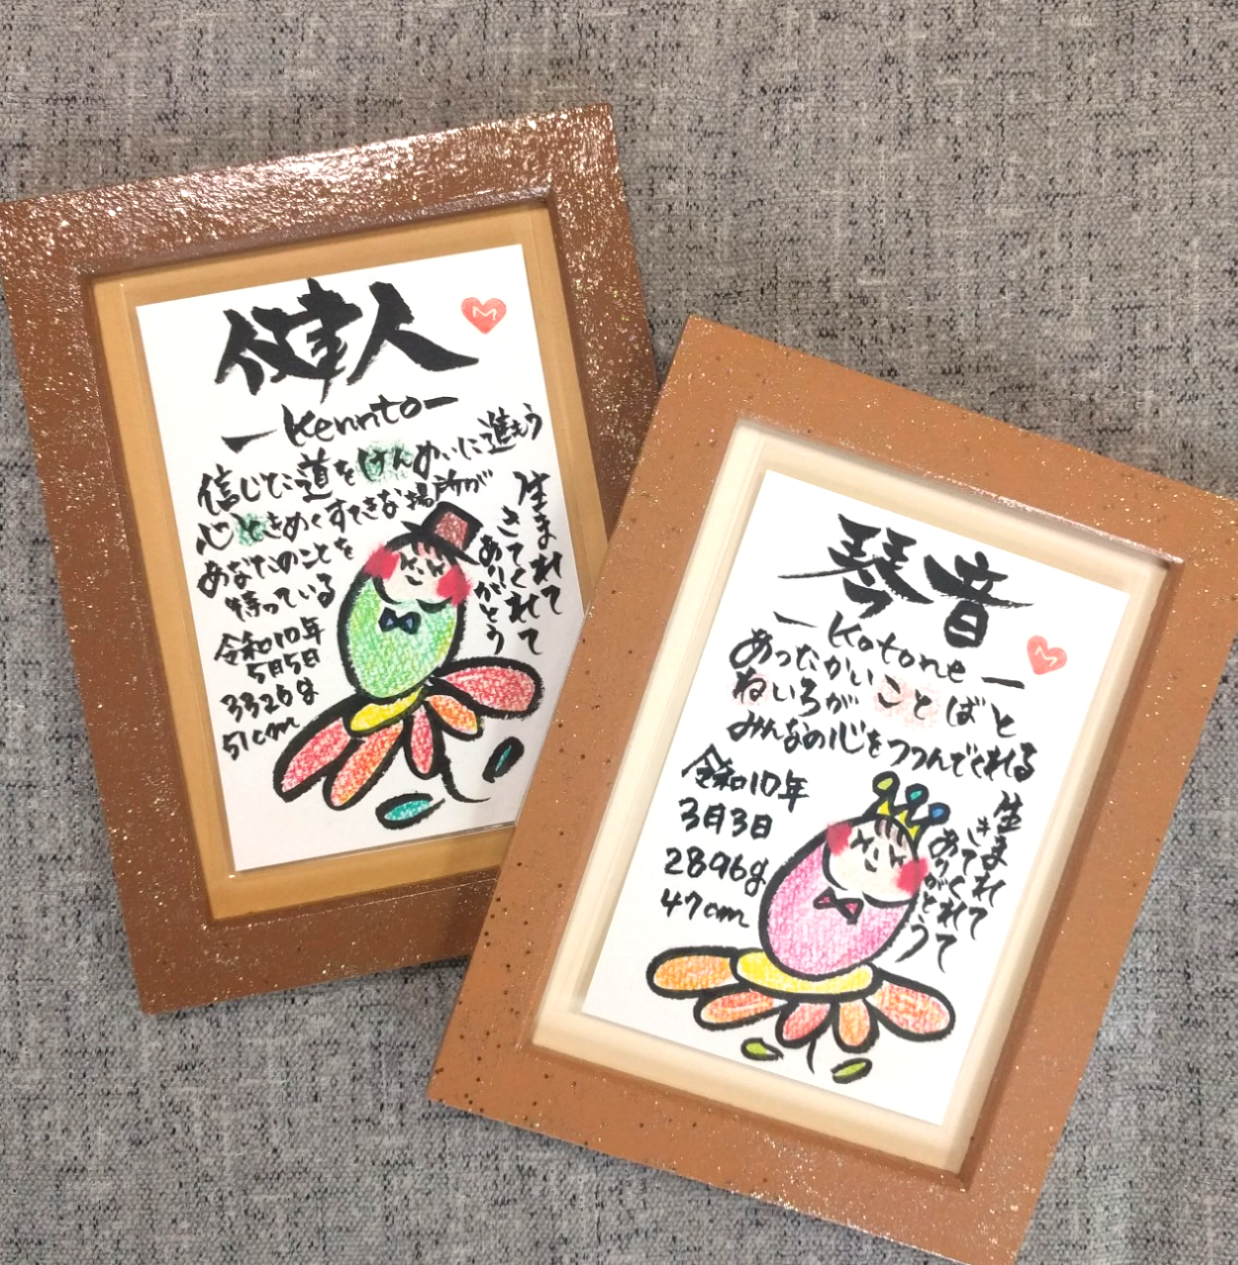 健人
M
-Kennto-
信じた道をけんめいに進もう
心ときめくすてきな場所が
あなたのことを
待っている
令和10年
5月5日
3326g
51cm
生まれて
きてくれて
ありがとう
琴音
M
-Kotone-
あったかい ことばと
ねいろが
みんなの心をつつんでくれる
令和10年
3月3日
2896g
47cm
生まれて
きてくれて
ありがとう